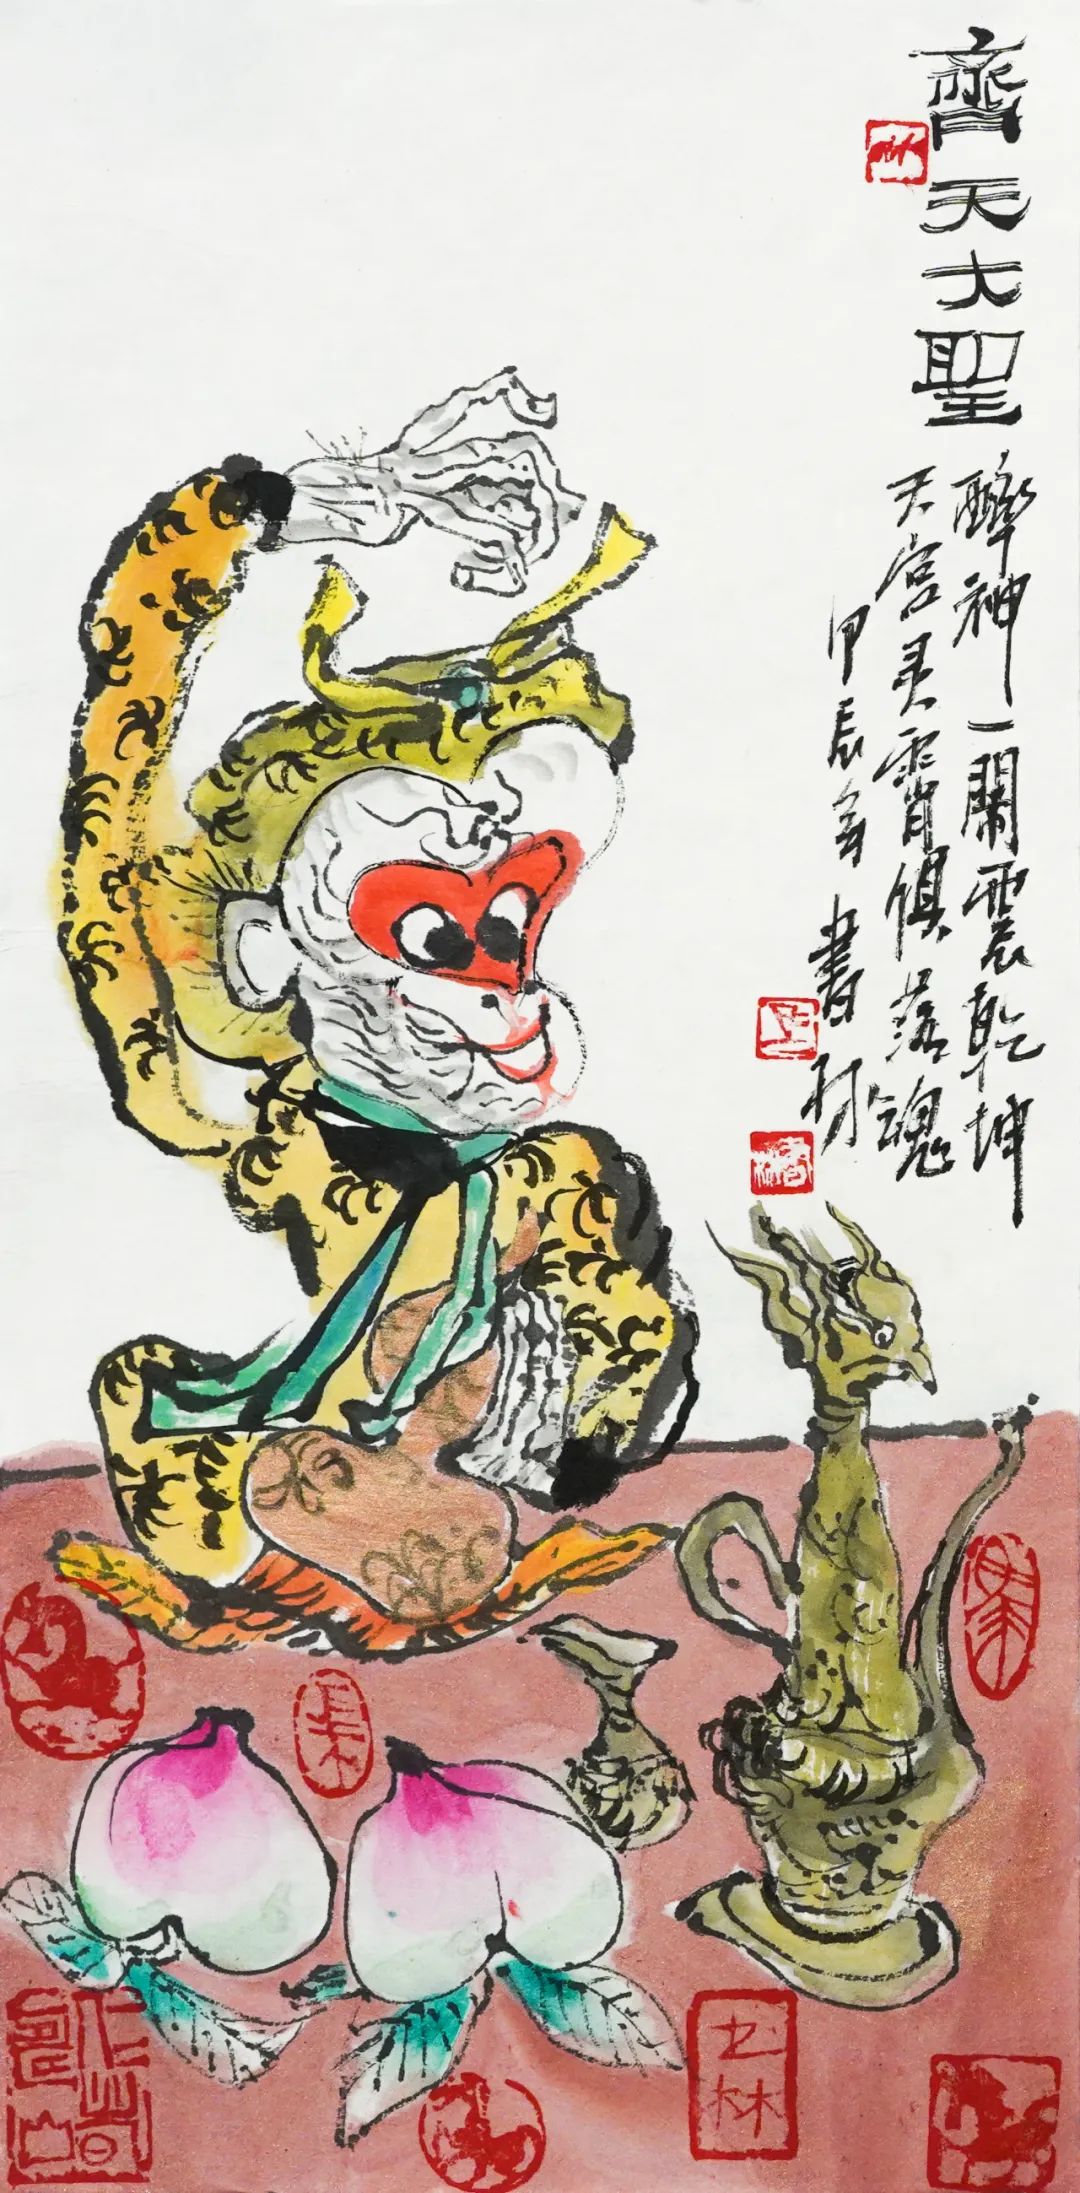 齊天大聖
醉神一閙震乾坤
天宫灵霄俱落魂
甲辰年 書林
书林